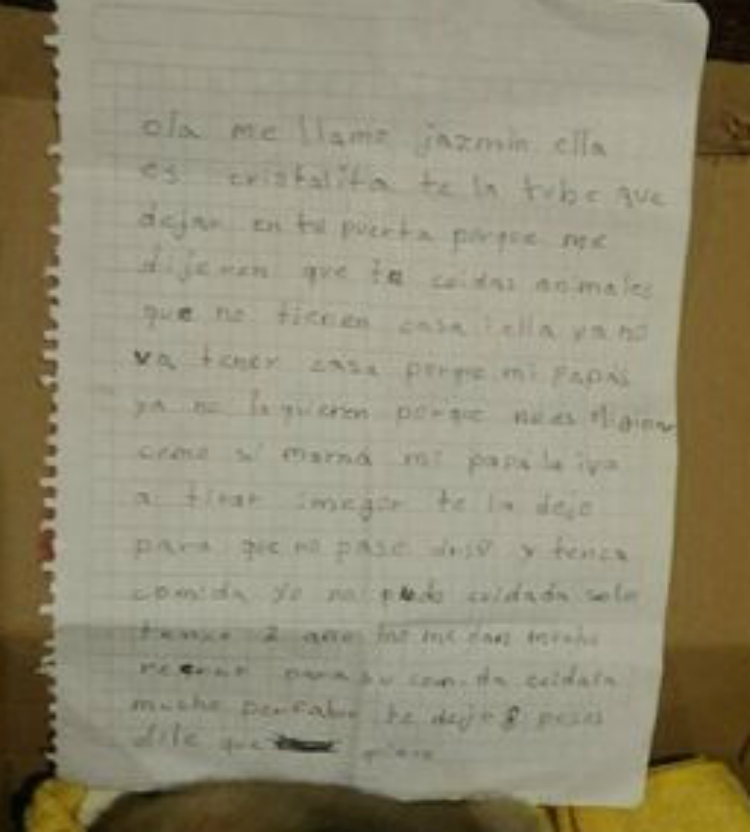 ola me llamo jazmin ella
es cristalita te la tube que
dejar en tu puerta porque me
dijeron que tu cuidas animales
que no tienen casa ella ya no
va tener casa porque mi papas
ya no la quieren porque no es
como si mamá mi papa la iva
a tirar imegor te la dejo
para que no pase y tenca
comida yo no puedo cuidada solo
tengo año no me dan mucho
para su comida cuidala
mucho porfabor te dejo 8 pesos
dile que